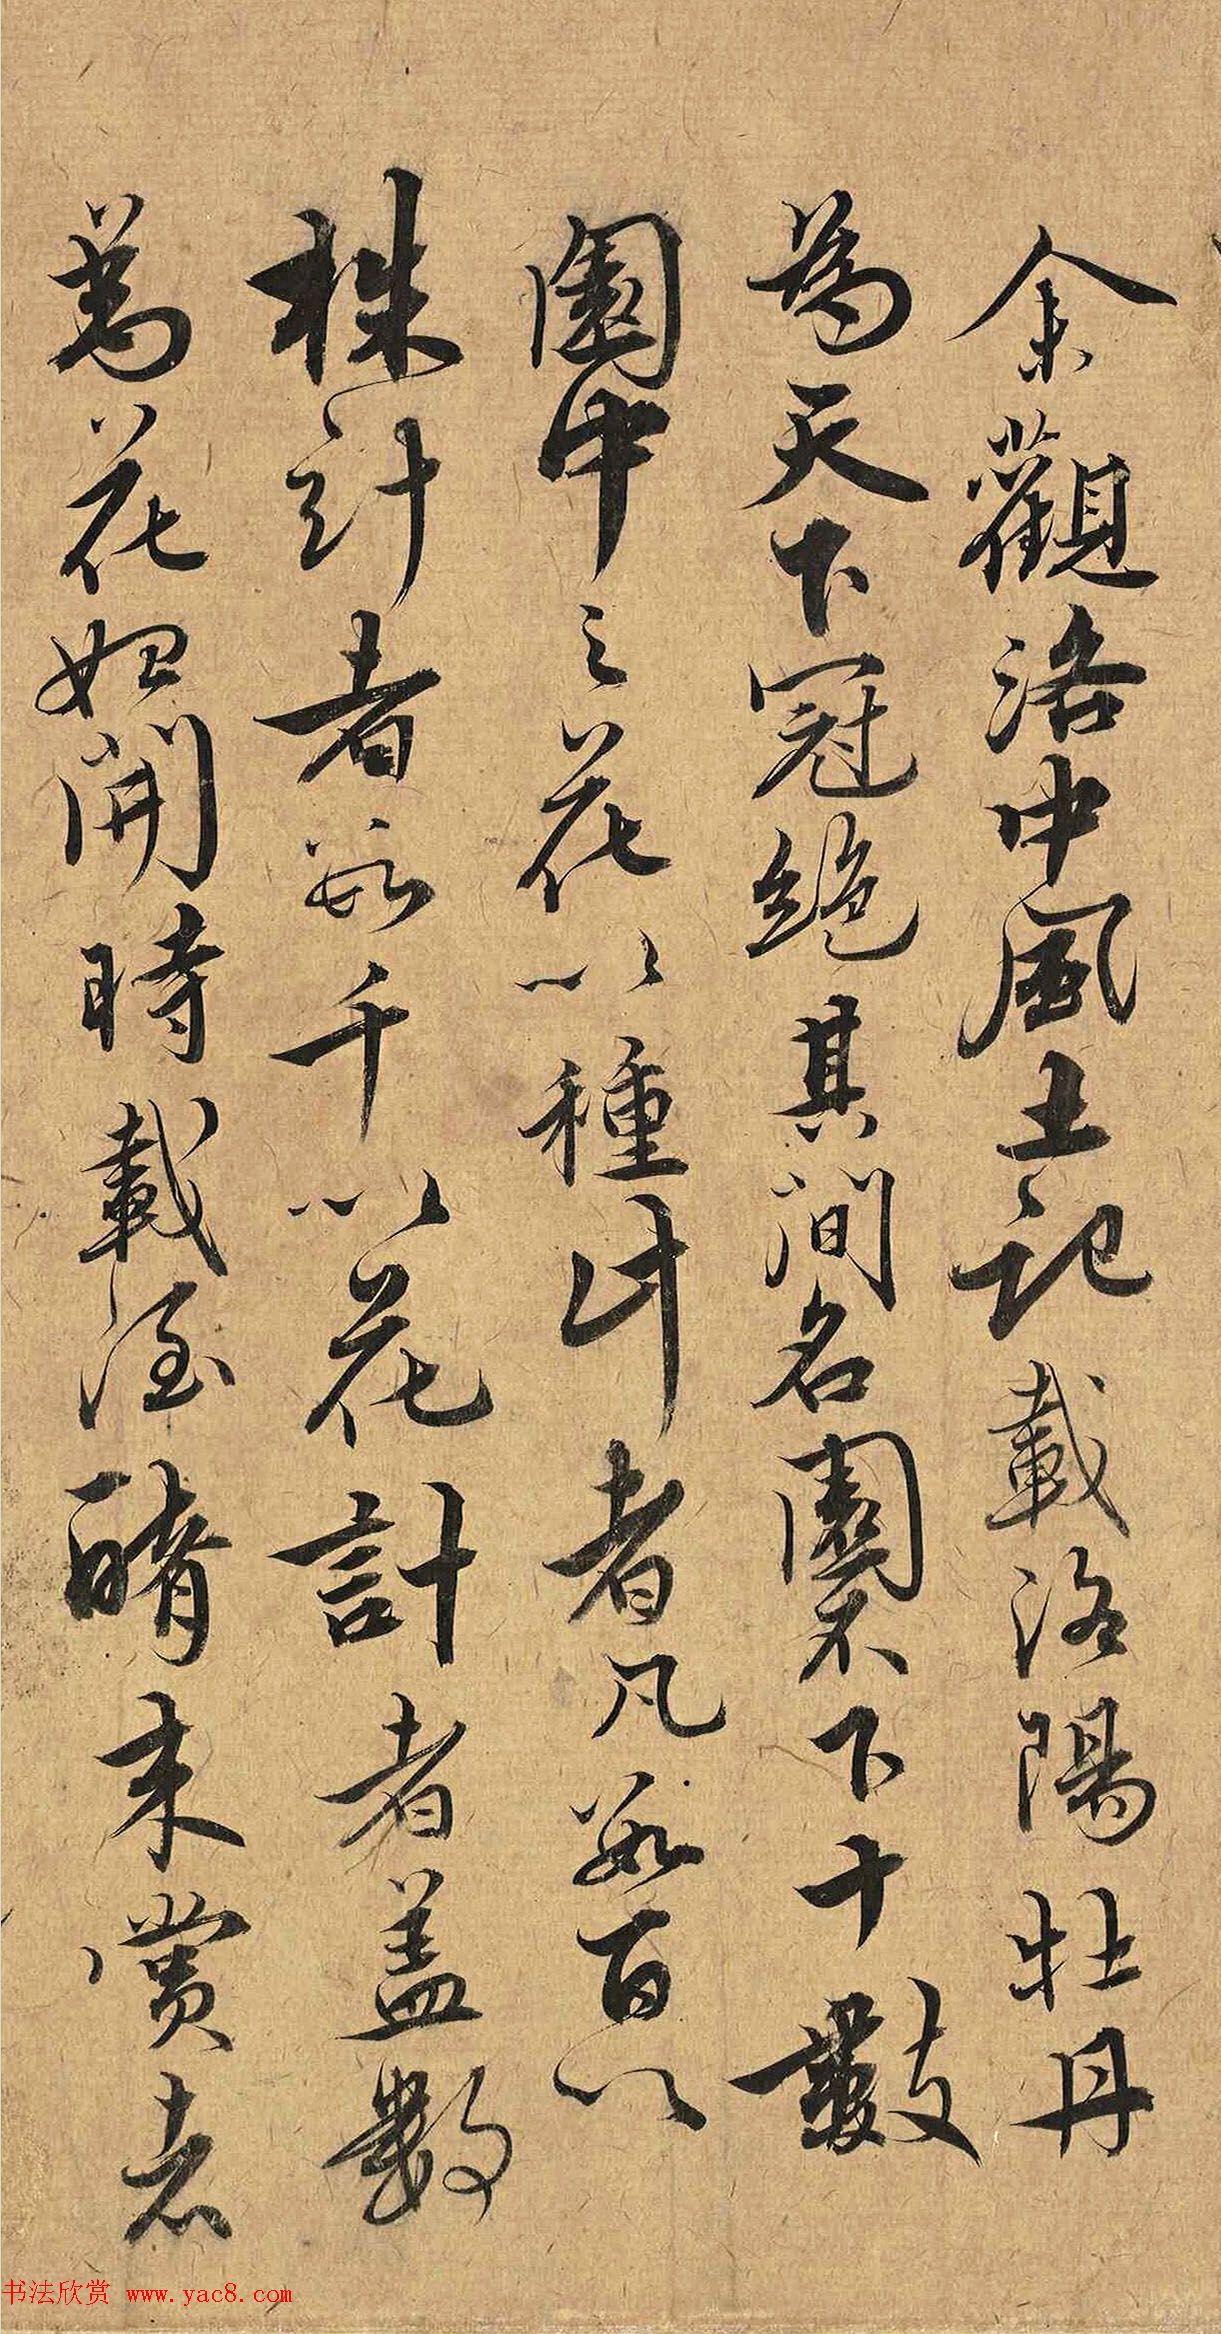 余觀洛中風土記載洛陽牡丹
為天下冠絕其間名園不下十數
園中之花以種計者凡數百以
株計者數千以花計者蓋數
萬花始開時載酒肴来賞者
书法欣赏 www.yac8.com